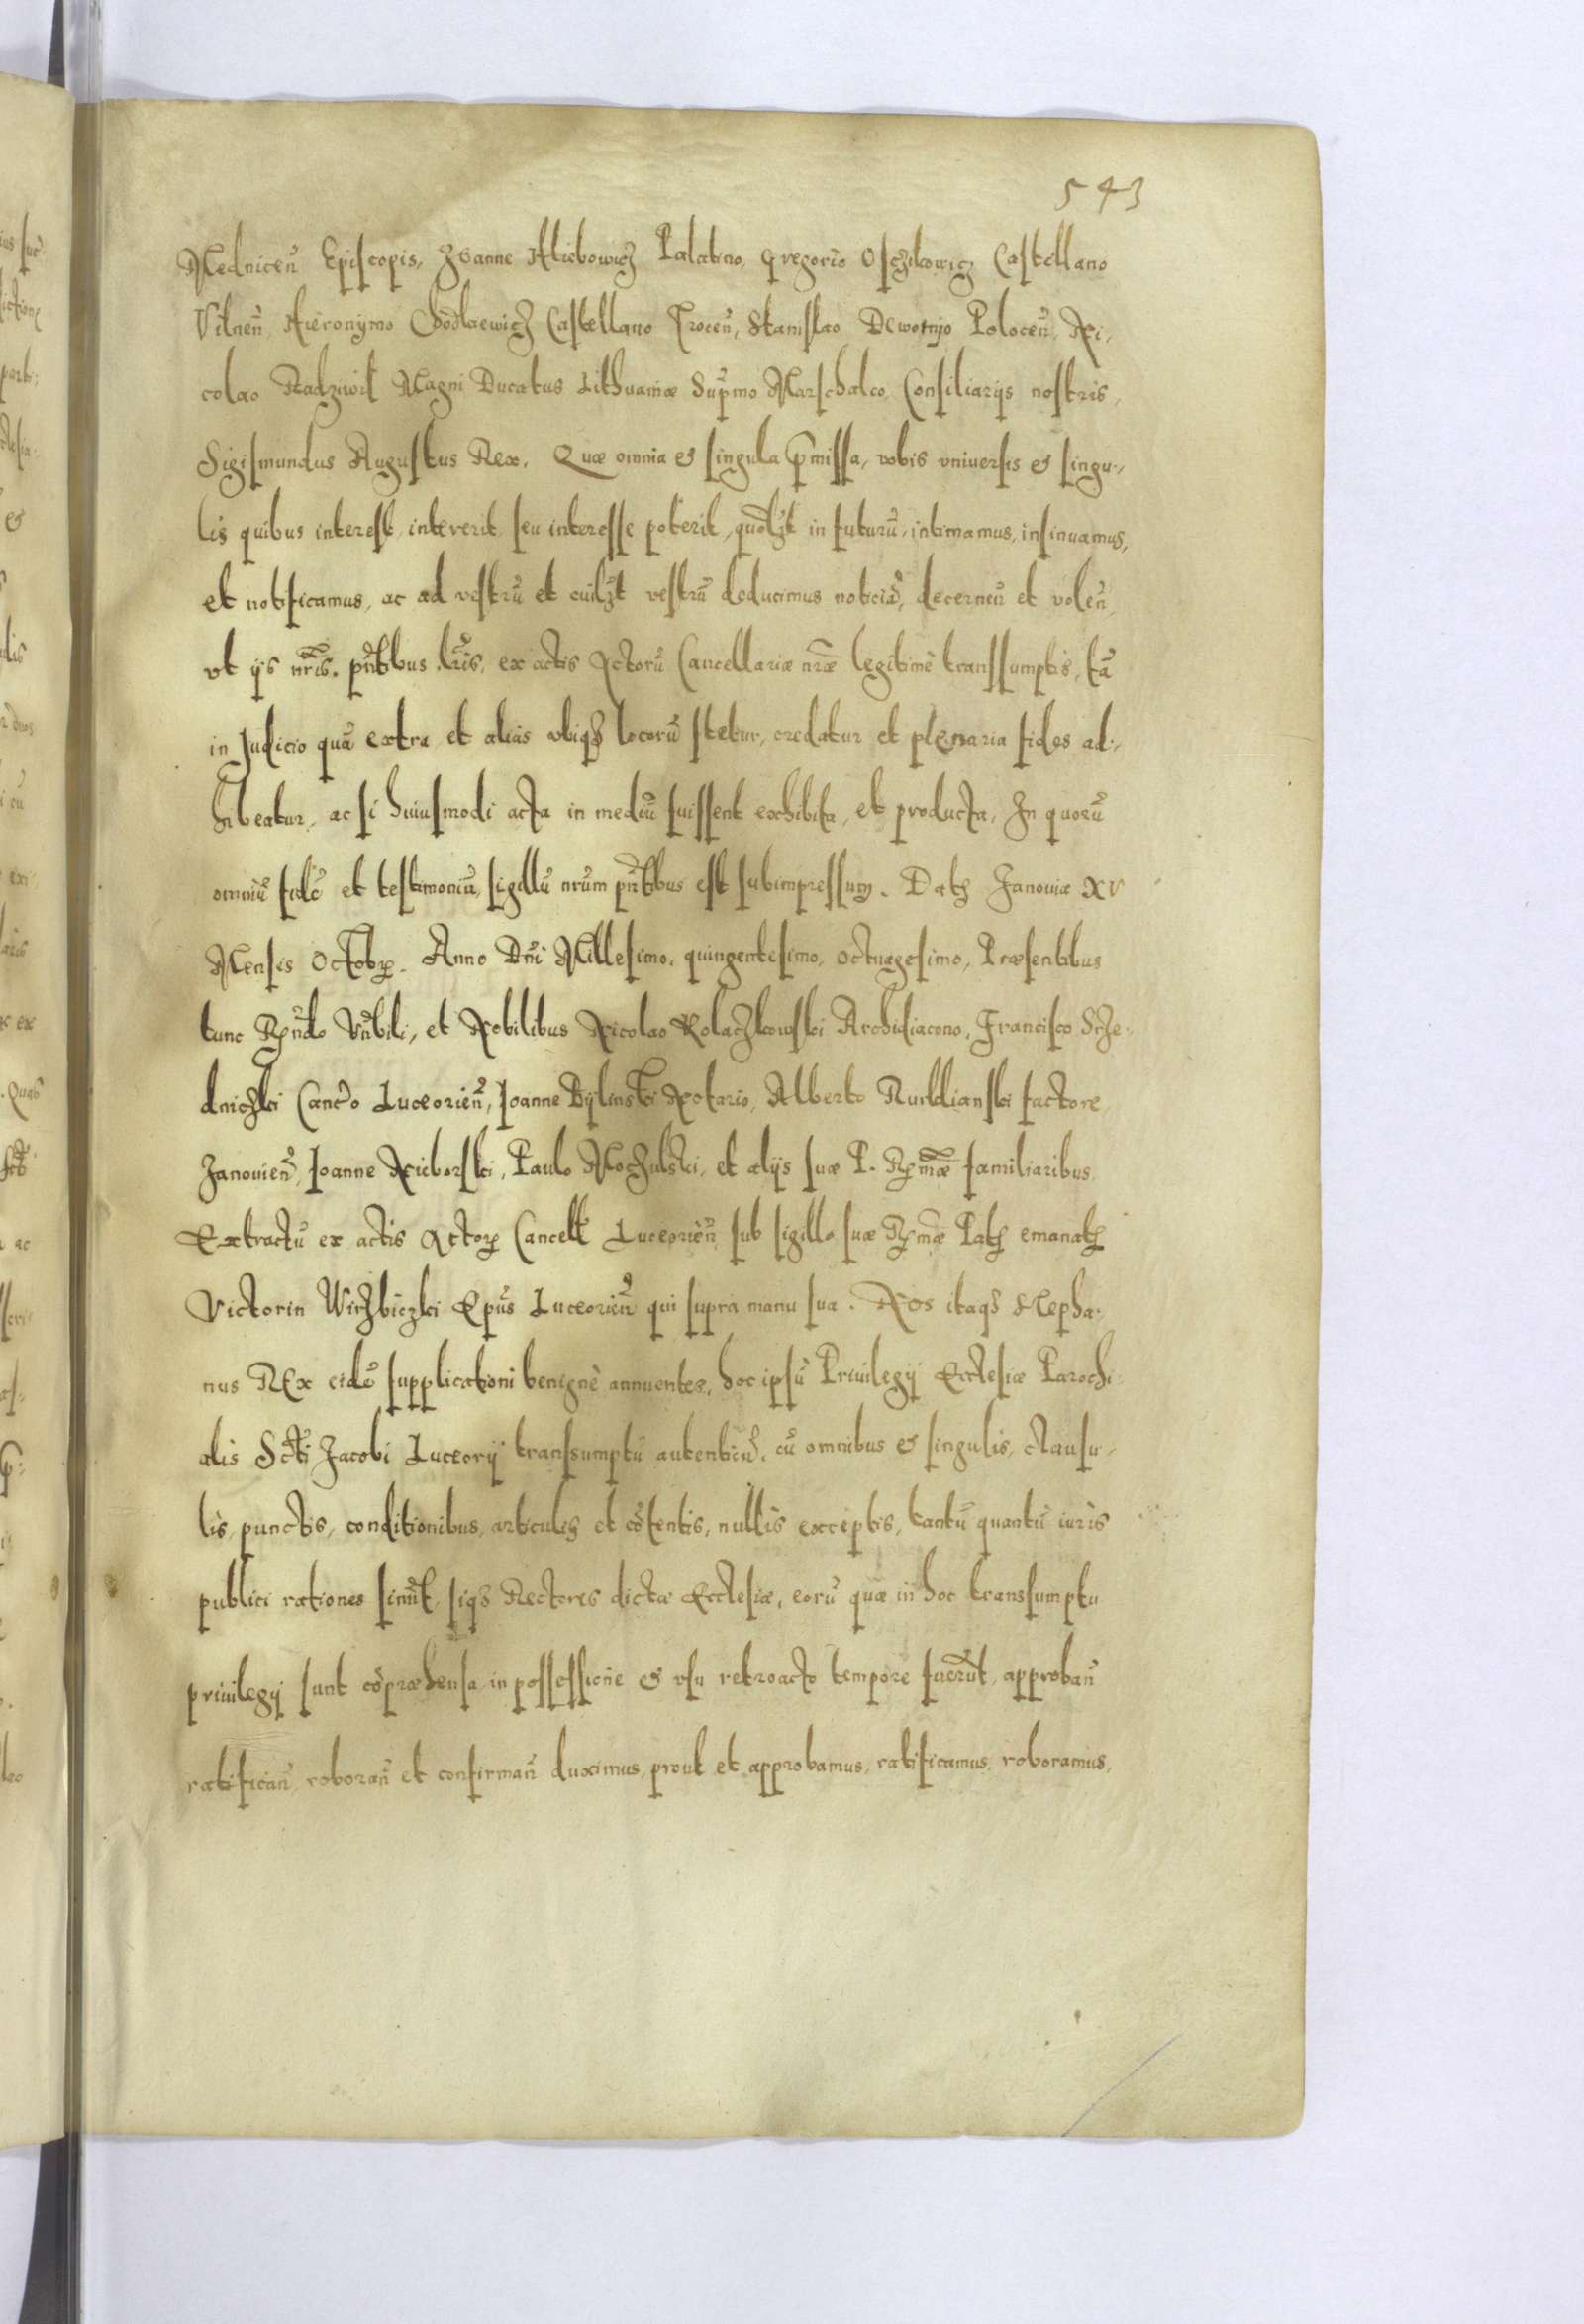 543
Mednicen̄ Episcopis, Joanne Hliebowicz Palatino, Gregorio Osczikowicz Castellano
Vilnen̄ Hieronymo Chodkiewicz Castellano Trocen̄, Stanislao Dewotnjo Polocen̄, Ni,
colao Radziwil Magni Ducatus Lithuaniæ Supr̄mo Marschalco, Consiliarijs nostris,
Sigismundus Augustus Rex. Quæ omnia et singula p̄missa, vobis vniuersis et singu,,
lis quibus interest, intererit, seu interesse poterit, quōlzt in futurū, intimamus, insinuamus,
et notificamus, ac ad vestrū et cuilzt vestrū deducimus noticiā, decernen̄ et volen̄,
vt ijs nr̄is. pn̄tibus lr̄is, ex actis Actorū Cancellariæ nr̄æ legitimè transsumptis, tā
in Judicio quā extra et aliàs vbiqȝ locorū stetur, credatur et plenaria fides ad,,
hibeatur, ac si huiusmodi acta in mediū fuissent exhibita, et producta, In quorū
omniū fidē et testimoniū, sigillū nr̄um pn̄tibus est subimpressum. Datȝ Janouiæ XV
Mensis Octobrꝭ. Anno Dn̄i Millesimo, quingentesimo, octuagesimo, Præsentibus
tunc Rn̄do Vn̄bili, et Nobilibus Nicolao Kolaczkowski Archidiacono, Francisco Scze,
dniczki Canc̄o Luceorien̄, Joanne Bylinski Notario, Alberto Kurklianski factore
Janouien̄, Joanne Nieborski, Paulo Moczulski, et alijs suæ P. Rm̄æ familiaribus.
Extractū ex actis Actorꝭ Cancell Luceorien̄ sub sigillo suæ Rm̄æ Patȝ emanatȝ
Victorin Wirzbiczki Ep̄us Luceorien̄ qui supra manu sua. Nos itaqȝ Stepha,
nus REx eidē supplicationi benignè annuentes, hoc ipsū Priuilegij Ecclesiæ Parochi,
alis Sc̄ti Jacobi Luceorij transsumptū autenticū, cū omnibus et singulis, clausu,
lis, punctis, conditionibus, articulis et cōtentis, nullis exceptis, tantū quantū iuris
publici rationes sinūt, siqȝ Rectores dictæ Ecclesiæ, eorū quæ in hoc transsumptu
priuilegij sunt cōpræhensa in possessione et vsu retroacto tempore fuerūt, approban̄
ratifican̄, roboran̄ et confirman̄ duximus, prout et approbamus, ratificamus, roboramus,